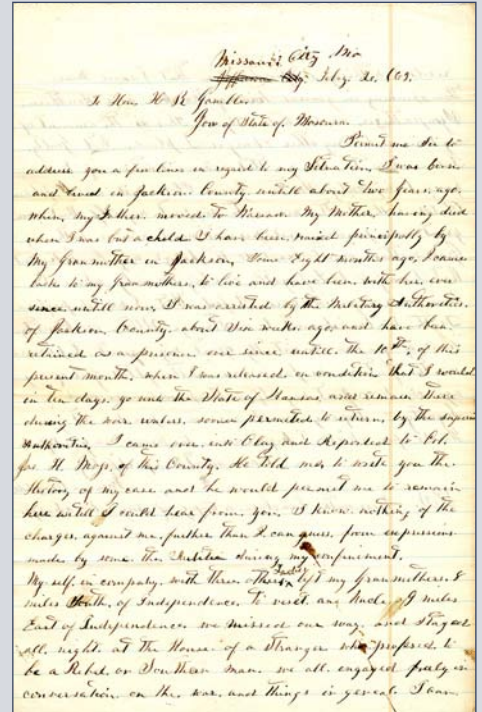 Missouri City Mo
Jefferson City Feby. 20. 1863.
To Hon. H R Gamble
Gov of State of Missouri
Permit me Sir to
address you a few lines in regard to my Situation, I was born
and lived in Jackson County untill about Two years, ago,
when, my Father, moved to My Mother, having died
when I was but a child I have been, raised principally by
My Granmother in Jackson, Some Eight months ago, I came
back to my Granmothers, to live and have been with her, ever
since untill now, I was arrested by the Military Authorities,
of Jackson, County, about Six weeks, ago, and have been
retained as a prisoner ever since untill the 10th, of this
present month, when I was released on condition that I would
in ten days, go into The State of Kansas, and remain There
during the war, unless, sooner permitted to return, by the superior
Authorities, I came over into Clay and Reported to Col.
Jas. H. Moss, of this County, He told me, to write you the
History of my case and he would permit me to remain
here untill I could hear from, you, I know nothing of the
charges, against me, further than I can guess, from expressions
made by some, the Militia during my confinement.
My self, in company, with three others Ladies left my Granmothers, 8
miles South, of Independence, to visit, an Uncle, 9 miles
East of Independence we missed our way, and stayed
all, night, at the House of a Stranger who professed to
be a Rebel, or Southern man, we all, engaged freely in
conversation, on the war, and things in general, I am